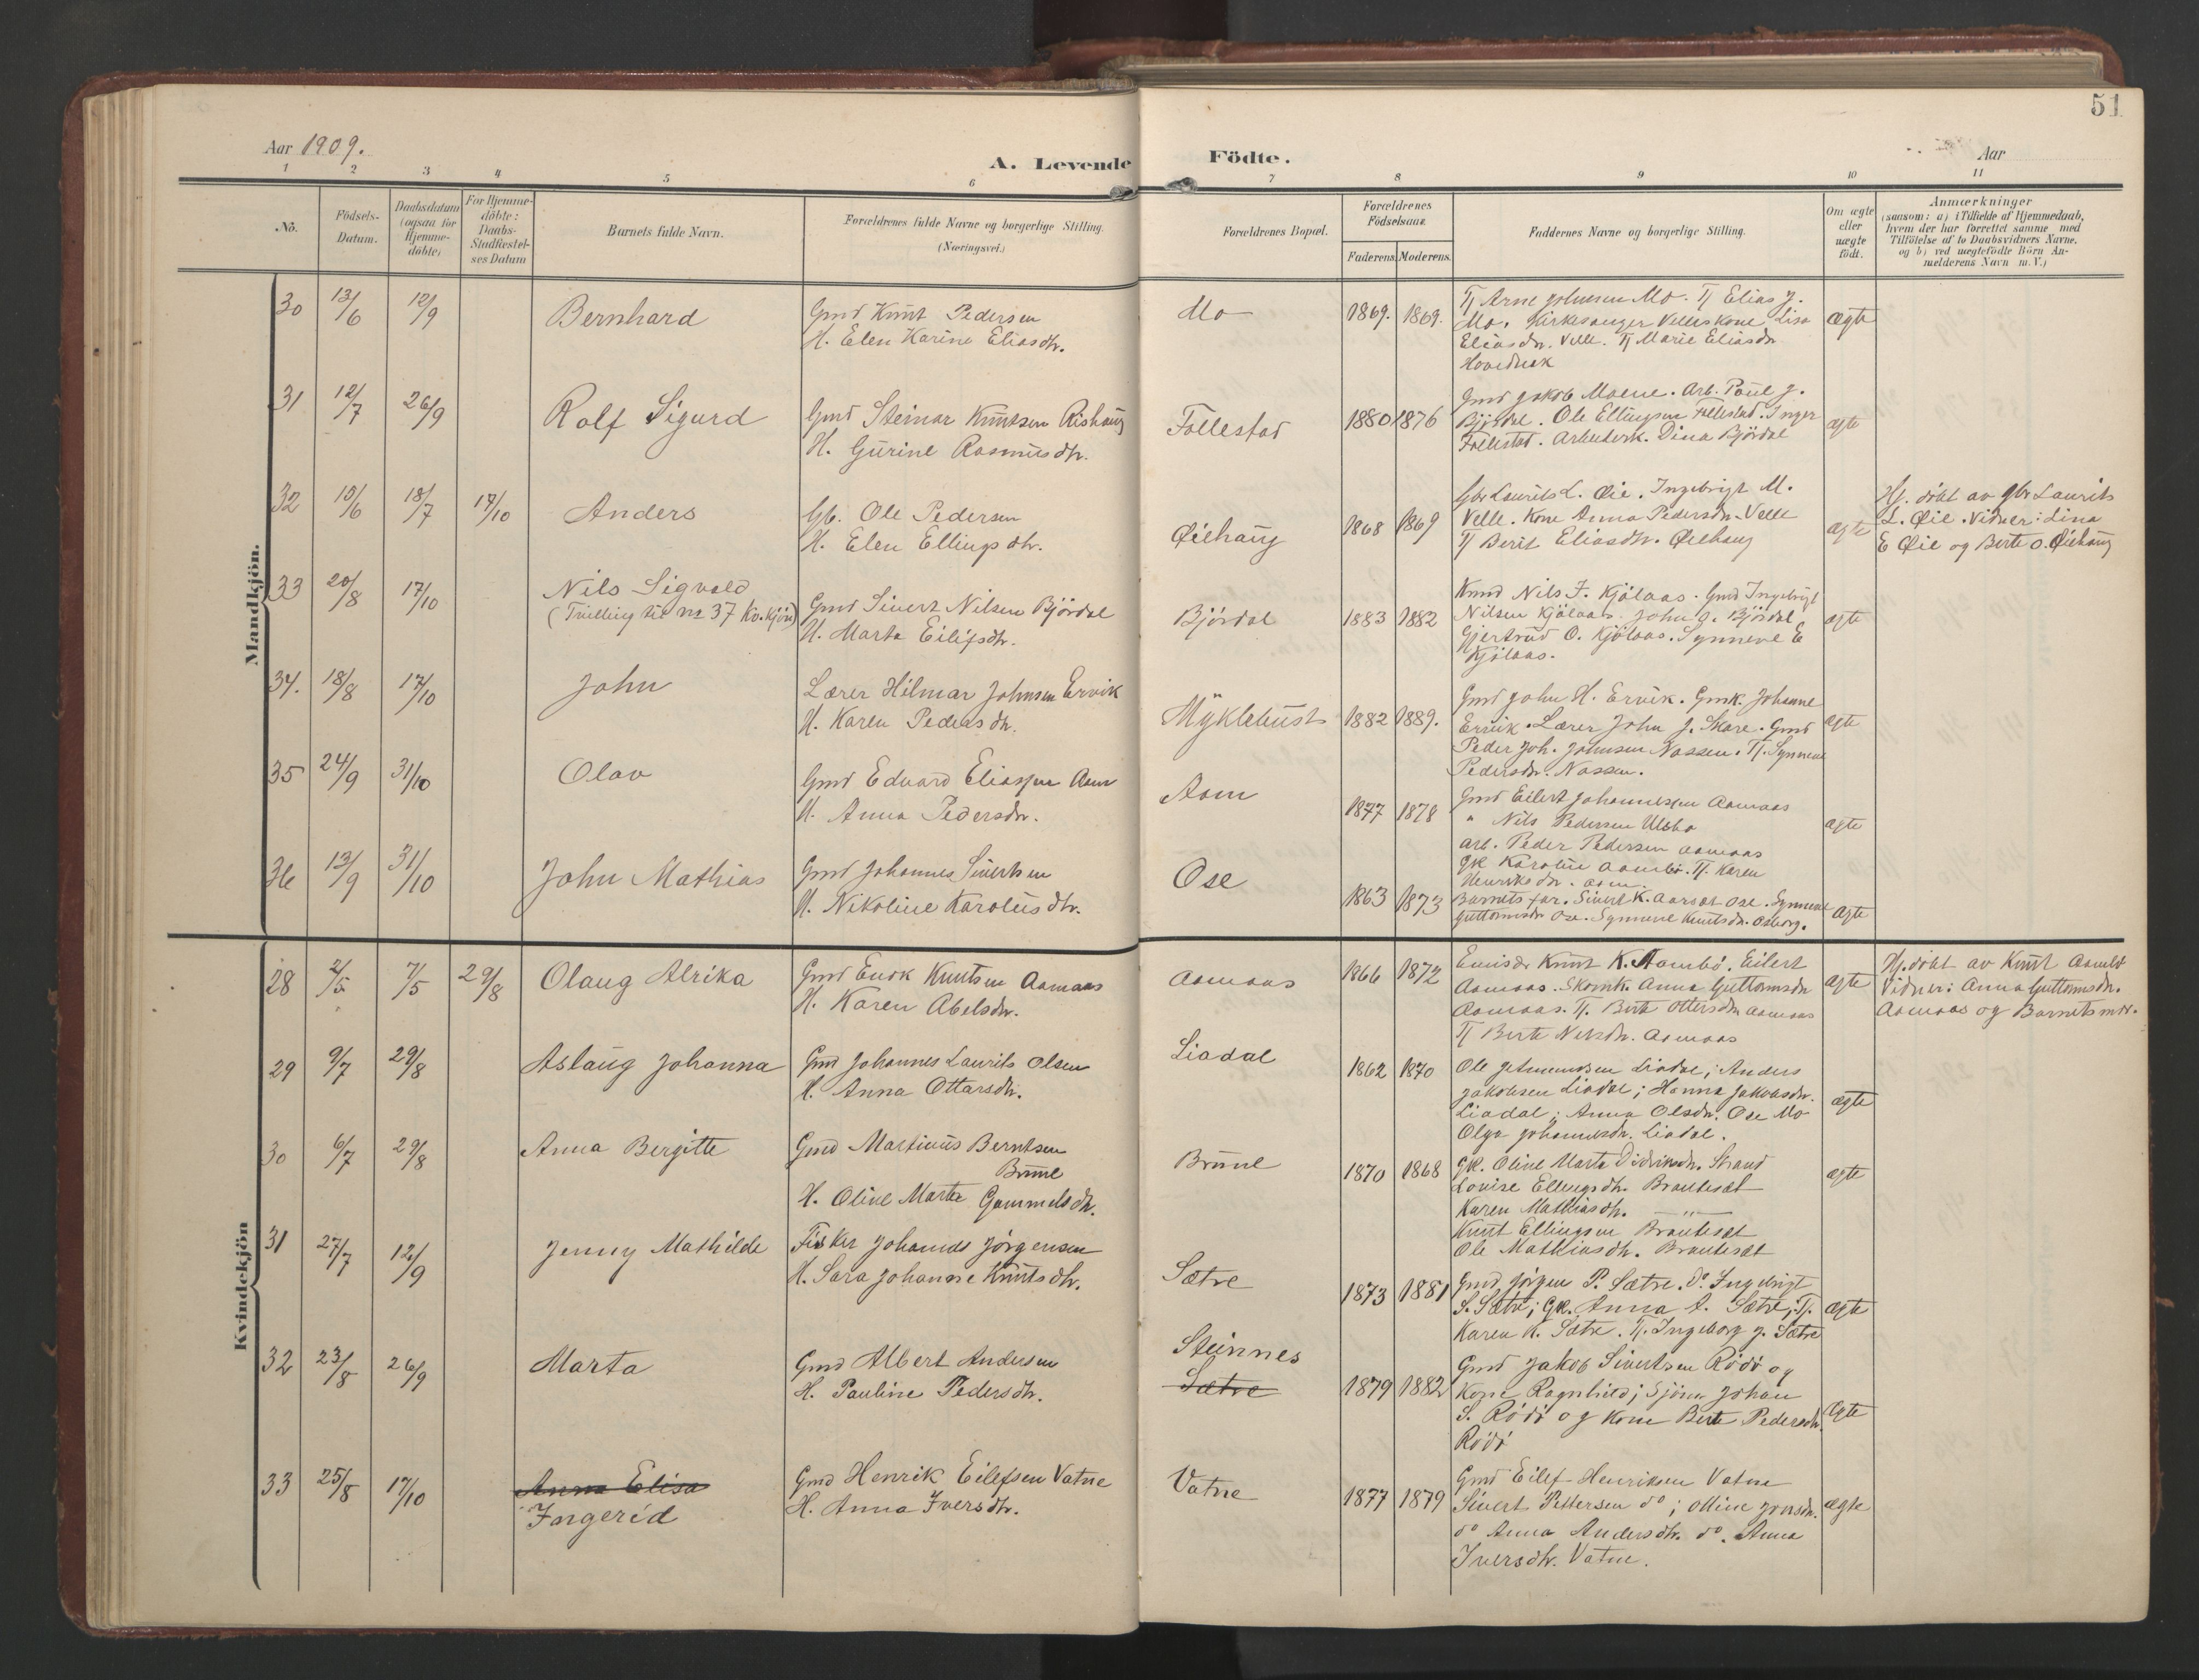 51
Aar 1909.
A. Levende Födte.
Aar
1 2 3 4 5 6 7 8 9 10 11
No.
Födsels-
Datum.
Daabsdatum
(ogsaa for
Hjemme-
döbte)
For Hjemme-
döbte:
Daabs-
Stadfæstel-
ses Datum
Barnets fulde Navn.
Forældrenes fulde Navne og borgerlige Stilling.
(Næringsvei.)
Forældrenes Bopæl.
Forældrenes
Födselsaar.
Faderens. Moderens.
Faddernes Navne og borgerlige Stilling.
Om ægte
eller
uægte
födt.
Anmærkninger
(saasom: a) i Tilfælde af Hjemmedaab,
hvem der har forrettet samme med
Tilföielse af to Daabsvidners Navne,
og b) ved uægtefödte Börn An-
melderens Navn m. V.)
Mandkjön.
30 13/6 12/9 Bernhard
Gmd Knut Pedersen
H. Elen Karine Eliasdtr.
Mo 1869. 1869.
Tj Arne Johnsen Mo. Tj Elias J.
Mo. Kirkesanger Velles Kone Lisa
Eliasdn. Velle. Tj Marie Eliasdn
ægte
31 12/7 26/9 Rolf Sigurd
Gmd Steinar Knutsen Rishaug
H. Gurine Rasmusdtr.
Follestad 1880 1876
Gmd Jakob Moene. Arb. Paul J.
Bjørdal. Ole Ellingsen Follestad. Inger
Follestad. Arbeiderk. Dina Bjørdal
ægte
32 15/6 18/7 17/10 Anders
Gb. Ole Pedersen
H. Elen Ellingsdtr.
Øiehaug 1868 1869
Gbr Laurits L. Øie. Ingebrigt M.
Velle. Kone Anna Pedersdn. Velle
Tj Berit Eliasdtr. Øiehaug
ægte
Hj. døbt av Gbr Laurits
L. Øie. Vidner: Lina
E Øie og Berte O. Øiehaug
33 20/8 17/10 Nils Sigvald
(Tvilling til no 37 Kv.kjøn)
Gmd Sivert Nilsen Bjørdal
H. Marta Eilifsdtr.
Bjørdal 1883 1882
Kmd Nils J. Kjølaas. Gmd Ingebrigt
Nilsen Kjølaas. John O. Bjørdal
Gjertrud O. Kjølaas. Synneve E
Kjølaas.
ægte
34. 18/8 17/10 John
Lærer Hilmar Johnsen Ervik
H. Karen Pedersdtr.
Myklebust 1882 1889.
Gmd John H. Ervik. Gmk. Johanne
Ervik. Lærer John J. Skare. Gmd
Peder Joh. Johnsen Nossen. Tj. Synneve
Pedersdtr. Nossen.
ægte
35 24/9 31/10 Olav
Gmd Edvard Eliassen Aam
H. Anna Pedersdtr.
Aam 1877 1878
Gmd Eilert Johannessen Aamaas
" Nils Pedersen Ulsbø
Arb. Peder Pedersen Aamaas
Gk Karoline Aambø. Tj. Karen
Henriksdtr. Aam.
ægte
36 13/9 31/10 John Mathias
Gmd Johannes Sivertsen
H. Nikoline Karolusdtr.
Ose 1863 1873
Barnets far. Sivert K. Aarset Ose. Synneve
Guttormsdtr Ose. Synneve Knutsdtr. Osborg.
ægte
Kvindekjön
28 2/5 7/5 29/8 Olaug Alrika
Gmd Enok Knutsen Aamaas
H. Karen Abelsdtr.
Aamaas 1866 1872
Knut K. Aambø. Eilert
Aamaas. Skomk. Anna Guttormsdtr
Aamaas. Tj. Berte Ottersdtr Aamaas
Tj Berte Nilsdtr. Aamaas
ægte
Hj. døbt av Knut Aambø
Vidner: Anna Guttormsdtr.
Aamaas og Barnets mor.
29 9/7 29/8 Aslaug Johanna
Gmd Johannes Laurits Olsen
H. Anna Ottarsdtr.
Liadal 1862 1870
Ole Liadal; Anders
Jakobsen Liadal; Hanna Jakobsdtr.
Liadal; Anna Olsdtr. Ose Mo
Olga Johannesdtr. Liadal.
ægte
30 6/7 29/8 Anna Bergitte
Gmd Martinus Berntsen
Brune
H. Oline Marta Gammelsdtr.
Brune 1870 1868
Gk. Oline Marta Didriksdtr. Strand
Lovise Ellingsdtr. Brauteset
Karen Mathiasdtr. — " —
Knut Ellingsen Brauteset
Ole Mathiasdtr. Brauteset
ægte
31 27/7 12/9 Jenny Mathilde
Fisker Johannes Jørgensen
H. Sara Johanne Knutsdtr.
Sætre 1873 1881
Gmd Jørgen P. Sætre. Do Ingebrigt
S. Sætre; Gk. Anna A. Sætre; Tj.
Karen K. Sætre. Tj. Ingeborg J. Sætre
ægte
32 23/8 26/9 Marta
Gmd Albert Andersen
H. Pauline Pedersdtr.
Steinnes
Sætre 1879 1882
Gmd Jakob Sivertsen Rødø og
Kone Ragnhild; Sjøm. Johan
S. Rødø og Kone Berte Pedersdtr.
Rødø
ægte
33 25/8 17/10 Anna Elisa
Ingerid
Gmd Henrik Eilefsen Vatne
H. Anna Iversdtr.
Vatne 1877 1879
Gmd Eilef Henriksen Vatne
Sivert Pettersen do; Oline Jonsdtr.
do Anna Andersdtr. do. Anna
Iversdtr. Vatne.
ægte